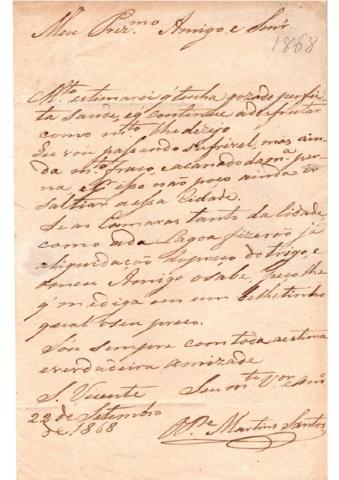 Meu Prez.mo Amigo e Senr
1868
M.to estimarei q' tenha gozado perfei
ta Saude, e q' continue a desfructar
como m.to lhe dezejo
Eu vou passando soffrivel, mas ain
da m.to fraco, e acanado da m.a per
na, e p.r isso não posso ainda ir
saltiar a essa Cidade.
Se as Camaras tanto da Cidade,
como a da Lagoa fizerão já
aliquidação do preço do trigo, e
o meu Amigo o sabe, peço lhe
q' m'ediga em um Belhetinho
qual o seu preço.
Sou sempre com toda a estima
e verdadeira amizade
S. Vicente
Seu m.to V.or e Am.o
22 de Setembro
de 1868
O P.e Martins Santos